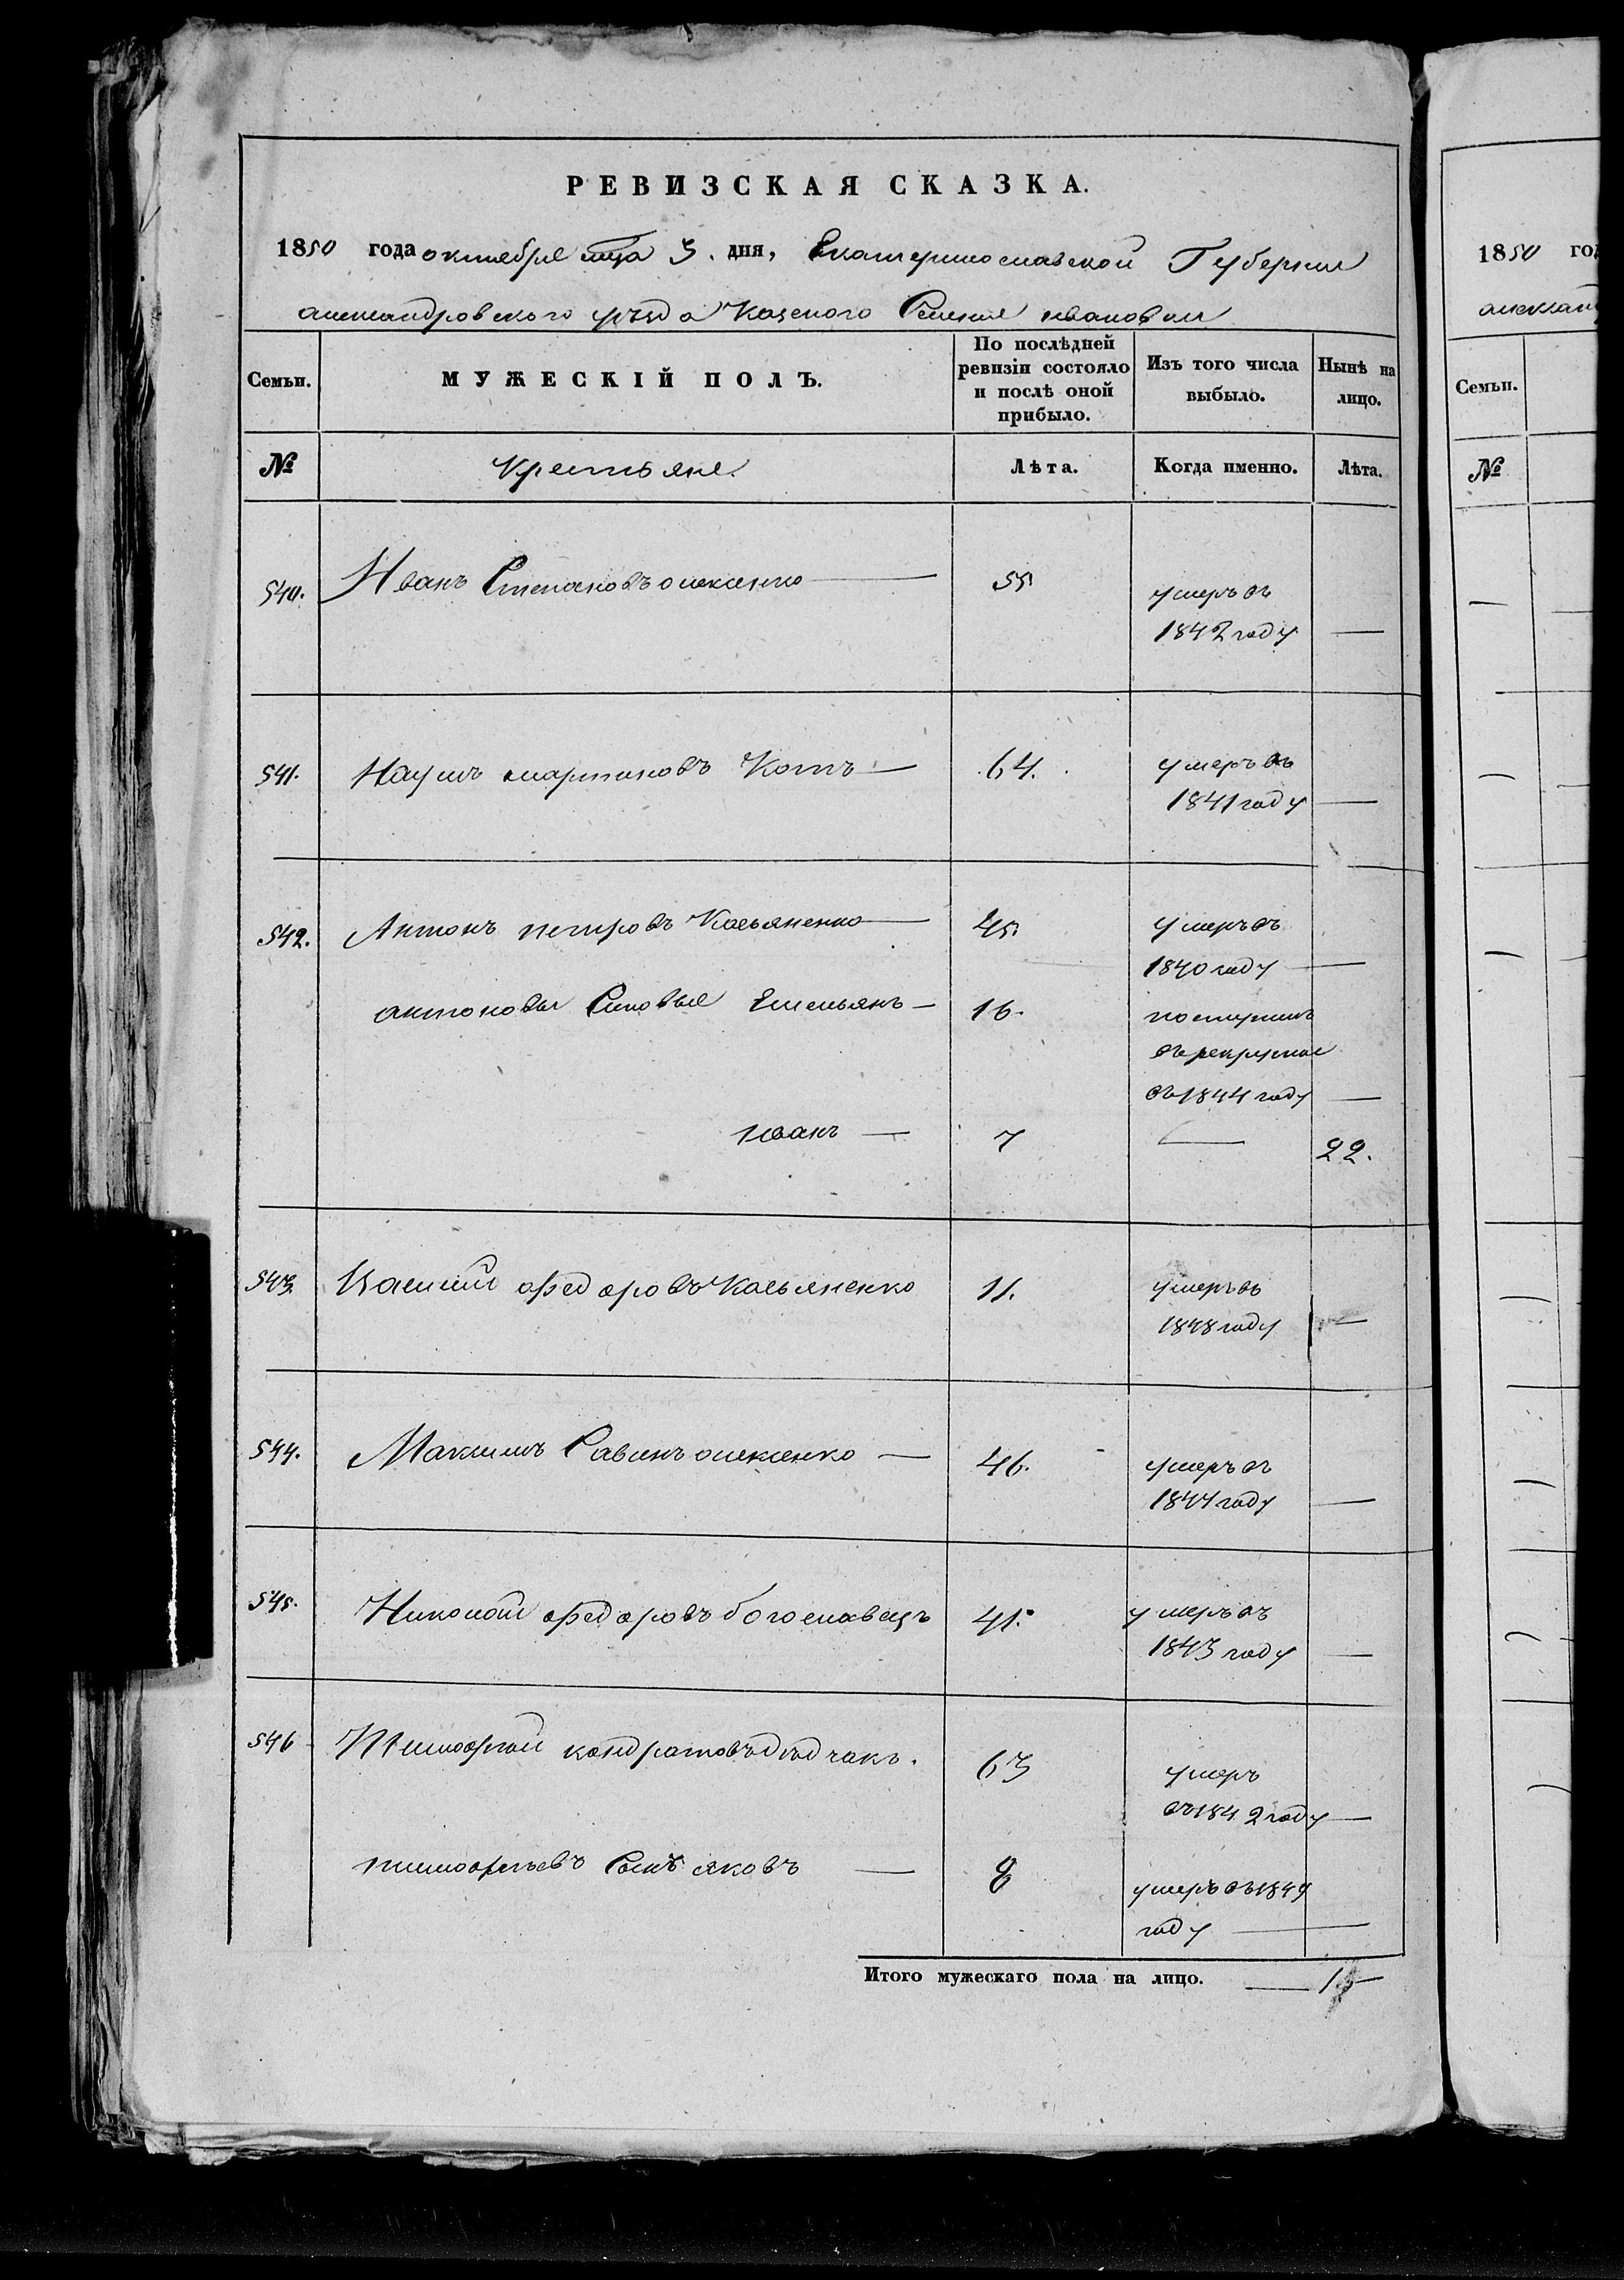 РЕВИЗСКАЯ СКАЗКА.
1850 года октября мца 3. дня, Екатеринославской Губернии
александровского уезда Казеного Селения ивановки
Семьи. МУЖЕСКІЙ ПОЛЪ. По послѣдней ревизіи состояло и послѣ оной прибыло. Изъ того числа выбыло. Нынѣ на лицо.
№ Крестьяне. Лѣта. Когда именно. Лѣта.
540. Иванъ Степановъ олексенко — 55. умеръ въ
1842 году —
541. Наумъ мартиновъ Котъ — 64. умеръ въ
1841 году —
542. Антонъ петровъ Касьяненко — 45. умеръ въ
1840 году —
антоновы Синовья Емельянъ — 16. поступилъ
въ рекруты
въ 1844 году —
иванъ — 7 — 22.
543. Василий федоровъ Касьяненко 11. умеръ въ
1848 году —
544. Максимъ Савинъ олексенко — 46. умеръ въ
1844 году —
545. Николай федоровъ богославецъ 41. умеръ въ
1843 году —
546 Тимофей кондратовъ 63 умеръ
въ 1842 году —
тимофеевъ Сынъ яковъ — 8 умеръ въ 1849
году —
Итого мужескаго пола на лицо. — 1 —
1850 год
Семьи.
№